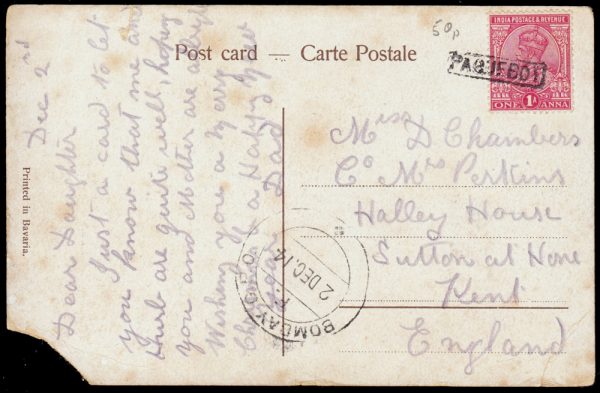 Post card — Carte Postale
50p
INDIA POSTAGE & REVENUE
ONE 1A ANNA
PAQUEBOT
Miss D Chambers
Co Mrs Perkins
Halley House
Sutton at Hone
Kent
England
BOMBAY G.P.O.
2 DEC. 14
Printed in Bavaria.
Dec 2nd
Dear Daughter
Just a card to let
you know that me and
are quite well, hoping
you and Mother are alright
Wishing you a Merry
& a Happy New
Year Dad